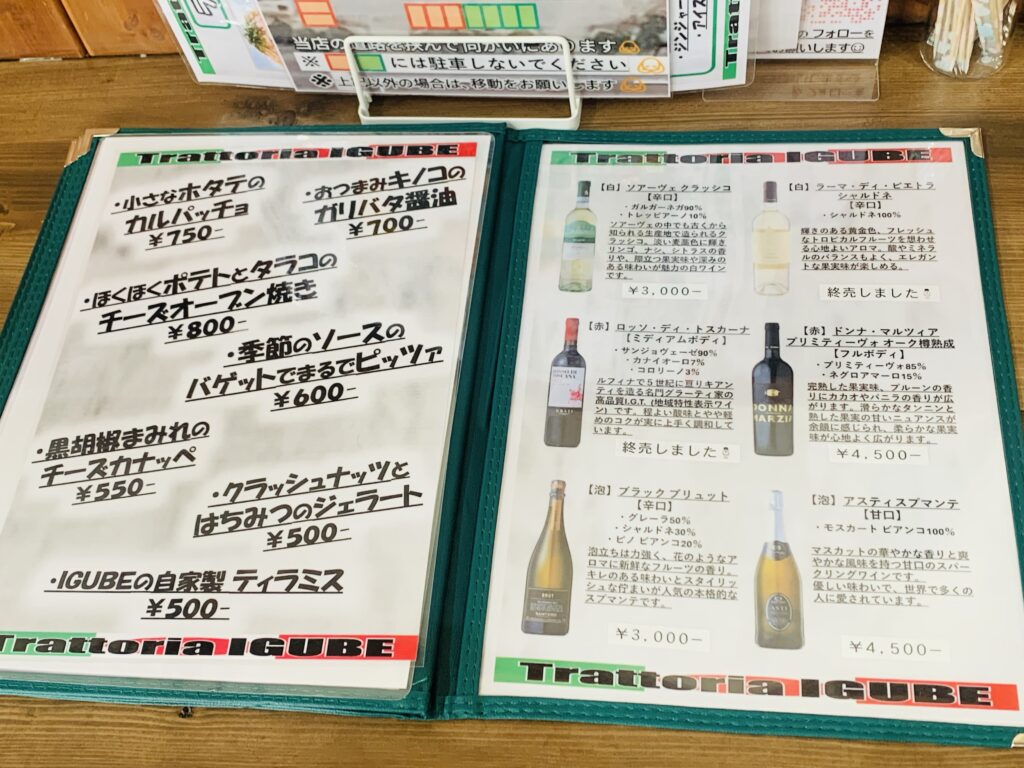 当店の道路を挟んで向かいにあります
※ には駐車しないでください
※上記以外の場合は、移動をお願いします
のフォローを
Trattoria IGUBE
・小さなホタテの
カルパッチョ
¥750-
・おつまみキノコの
ガリバタ醤油
¥700-
・ほくほくポテトとタラコの
チーズオーブン焼き
¥800-
・季節のソースの
バゲットでまるでピッツァ
¥600-
・黒胡椒まみれの
チーズカナッペ
¥550-
・クラッシュナッツと
はちみつのジェラート
¥500-
・IGUBEの自家製 ティラミス
¥500-
Trattoria IGUBE
Trattoria IGUBE
【白】ソアーヴェ クラッシコ
【辛口】
・ガルガーネガ90%
・トレッビアーノ10%
ソアーヴェの中でも古くから
知られる生産地で造られるク
ラッシコ。淡い麦藁色に輝き
リンゴ、ナシ、シトラスの香
りや、際立つ果実味や深みの
ある味わいが魅力の白ワイン
です。
¥3,000-
【白】ラーマ・ディ・ピエトラ
シャルドネ
【辛口】
・シャルドネ100%
輝きのある黄金色、フレッシュ
なトロピカルフルーツを想わせ
る心地よいアロマ。酸やミネラ
ルのバランスもよく、エレガン
トな果実味が楽しめる。
終売しました
【赤】ロッソ・ディ・トスカーナ
【ミディアムボディ】
・サンジョヴェーゼ90%
・カナイオーロ7%
・コロリーノ3%
ルフィナで5世紀に亘りキアン
ティを造る名門グラーティ家の
高品質I.G.T.(地域特性表示ワイ
ン)です。程よい酸味とやや軽
めのコクが実に上手く調和して
います。
終売しました
【赤】ドンナ・マルツィア
プリミティーヴォ オーク樽熟成
【フルボディ】
・プリミティーヴォ85%
・ネグロアマーロ15%
完熟した果実味、プルーンの香
りにカカオやバニラの香りが広
がります。滑らかなタンニンと
熟した果実の甘いニュアンスが
余韻に感じられ、柔らかな果実
味が心地よく広がります。
DONNA
MARZIA
¥4,500-
【泡】ブラック ブリュット
【辛口】
・グレーラ50%
・シャルドネ30%
・ピノ ビアンコ20%
泡立ちは力強く、花のようなア
ロマに新鮮なフルーツの香り。
キレのある味わいとスタイリッ
シュな佇まいが人気の本格的な
スプマンテです。
¥3,000-
【泡】アスティスプマンテ
【甘口】
・モスカート ビアンコ100%
マスカットの華やかな香りと爽
やかな風味を持つ甘口のスパー
クリングワインです。
優しい味わいで、世界で多くの
人に愛されています。
ASTI
¥4,500-
Trattoria IGUBE